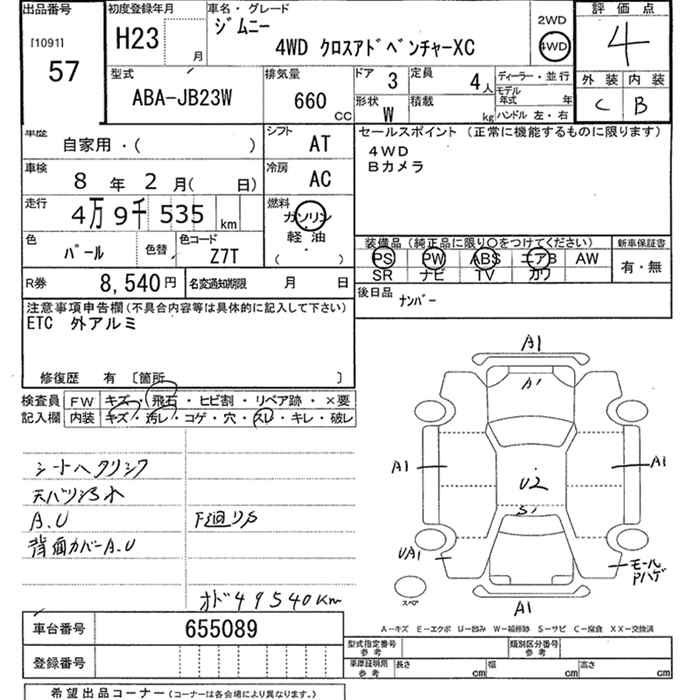 出品番号
[1091]
57
初度登録年月
H23
月
車名・グレード
ジムニー
4WD クロスアドベンチャーXC
2WD
4WD
評価点
4
外装 内装
C B
型式
ABA-JB23W
排気量
660 CC
ドア 3
定員 4人
形状 W
積載 kg
ディーラー・並行
モデル年式 年
ハンドル 左・右
車歴
自家用・( )
シフト AT
車検
8年2月( 日)
冷房 AC
走行
4万9千535 km
燃料
ガソリン
軽・油
( )
色
パール
色替
色コード
Z7T
R券 8,540円
名変通知期限 月 日
セールスポイント (正常に機能するものに限ります)
4WD
Bカメラ
装備品(純正品に限り○をつけてください)
PS PW ABS エアB AW
SR ナビ TV カワ
新車保証書
有・無
後日品
ナンバー
注意事項申告欄(不具合内容等は具体的に記入して下さい)
ETC 外アルミ
修復歴 有〔箇所 〕
検査員
記入欄
FW キズ・飛石・ヒビ割・リペア跡・×要
内装 キズ・汚レ・コゲ・穴・スレ・キレ・破レ
シートヘタリシワ
天バリシミ
A.U
背面カバーA.U
下廻りS
オド49540Km
A1
A'
A1
U2
S'
A1
UA1
モール
アハゲ
スペア
A1
A-キズ E-エクボ U-凹み W-補修跡 S-サビ C-腐食 XX-交換済
車台番号 655089
登録番号
型式指定番号
参考
類別区分番号
参考
車庫証明用
参考
長さ cm
幅 cm
高さ cm
希望出品コーナー(コーナーは各会場により異なります。)